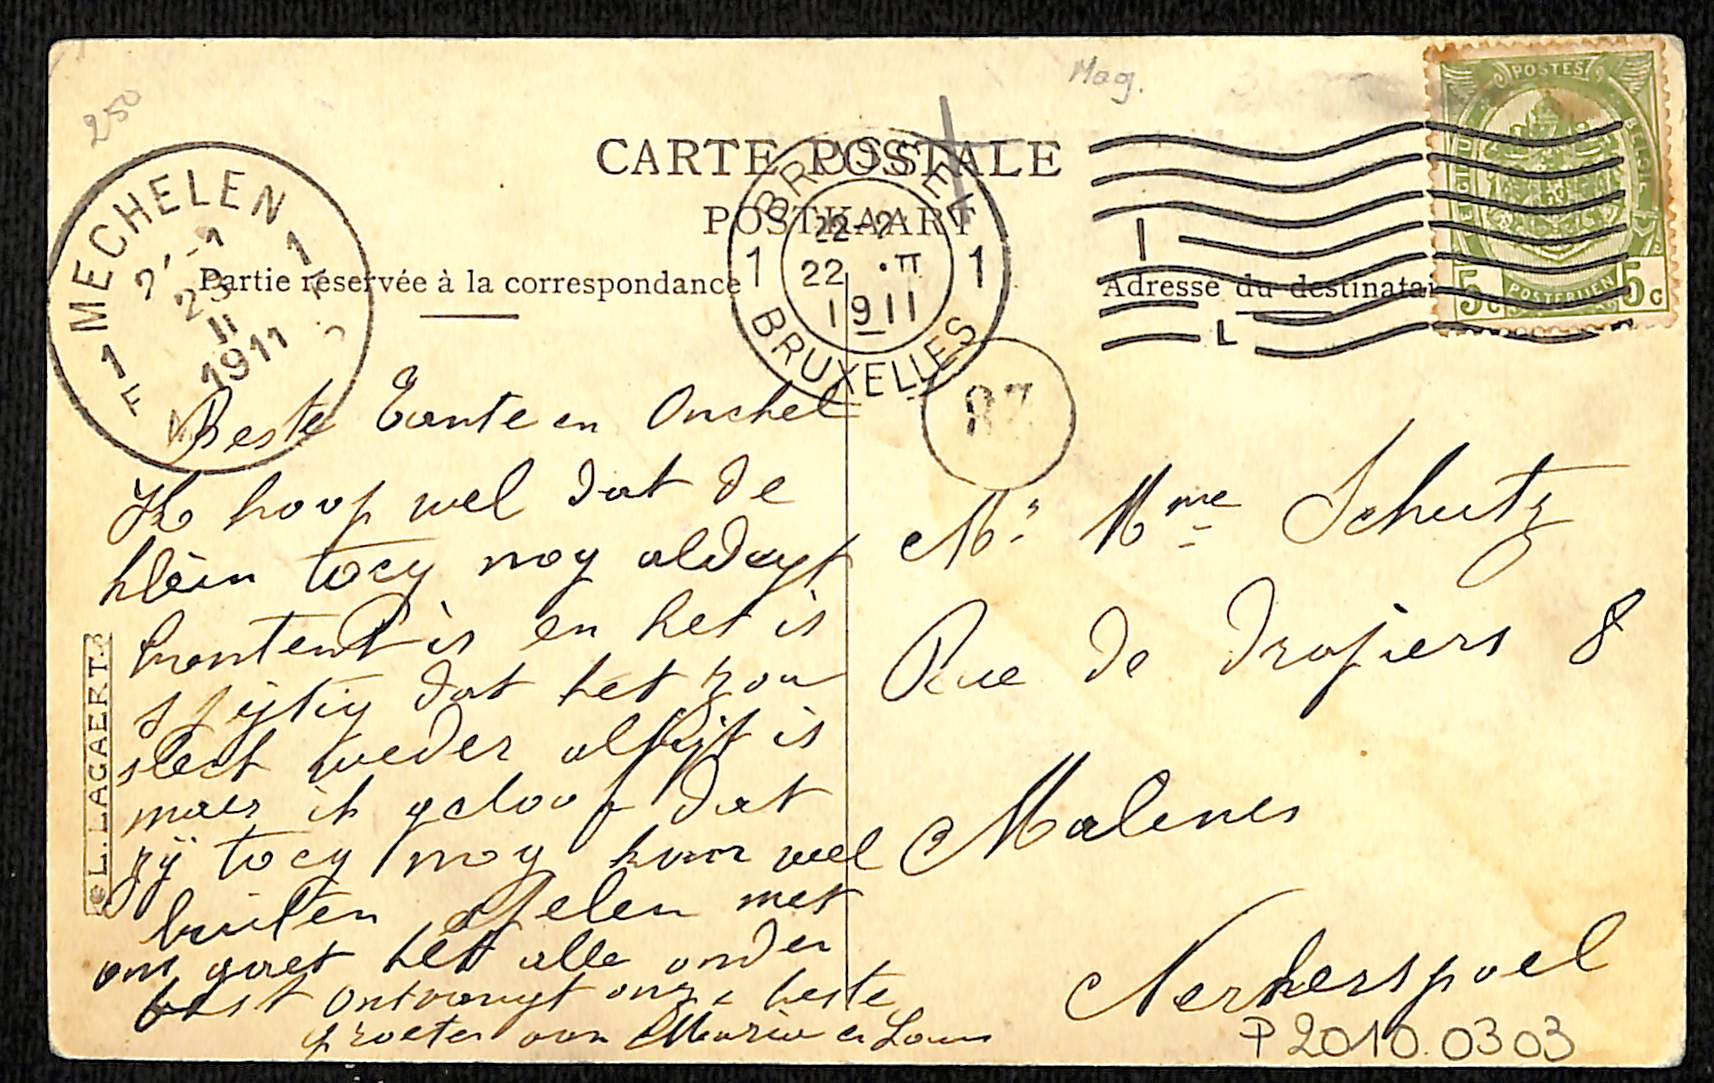 250
Mag.
CARTE POSTALE
POSTKAART
Partie réservée à la correspondance
Adresse du destinatai
MECHELEN
1 1
23
II
1911
BRUSSEL
22-2
1 22 II 1
1911
BRUXELLES
POSTES
BELGIE
5c POSTERIJEN 5c
Beste Tante en Onchel
Ik hoop wel dat de
klein tocy noy aldeyt
kontent is en het is
spijtig dat het zou
slect weder altijt is
maer ik geloof dat
zij tocy noy kan wel
buiten spelen met
ons gaet het alle onder
best ontvangt onze beste
groeten van Maria en Louis
Mr Mme Schutz
Rue de Drapiers 8
Malines
Nerkerspoel
P2010.0303
L. LAGAERT.B